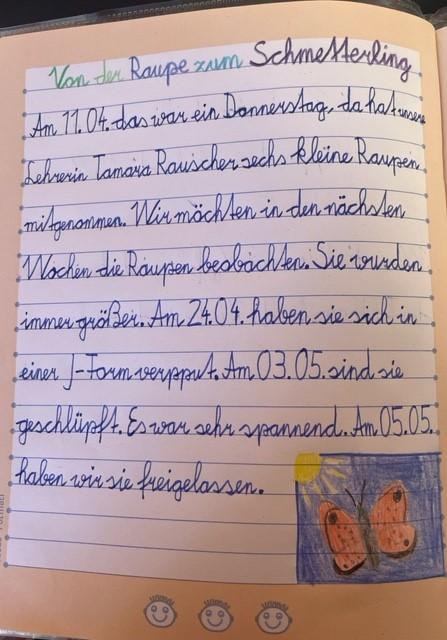 Von der Raupe zum Schmetterling
Am 11.04. das war ein Donnerstag, da hat unsere
Lehrerin Tamara Rauscher sechs kleine Raupen
mitgenommen. Wir möchten in den nächsten
Wochen die Raupen beobachten. Sie wurden
immer größer. Am 24.04. haben sie sich in
einer J-Form verpput. Am 03.05. sind sie
geschlüpft. Es war sehr spannend. Am 05.05.
haben wir sie freigelassen.